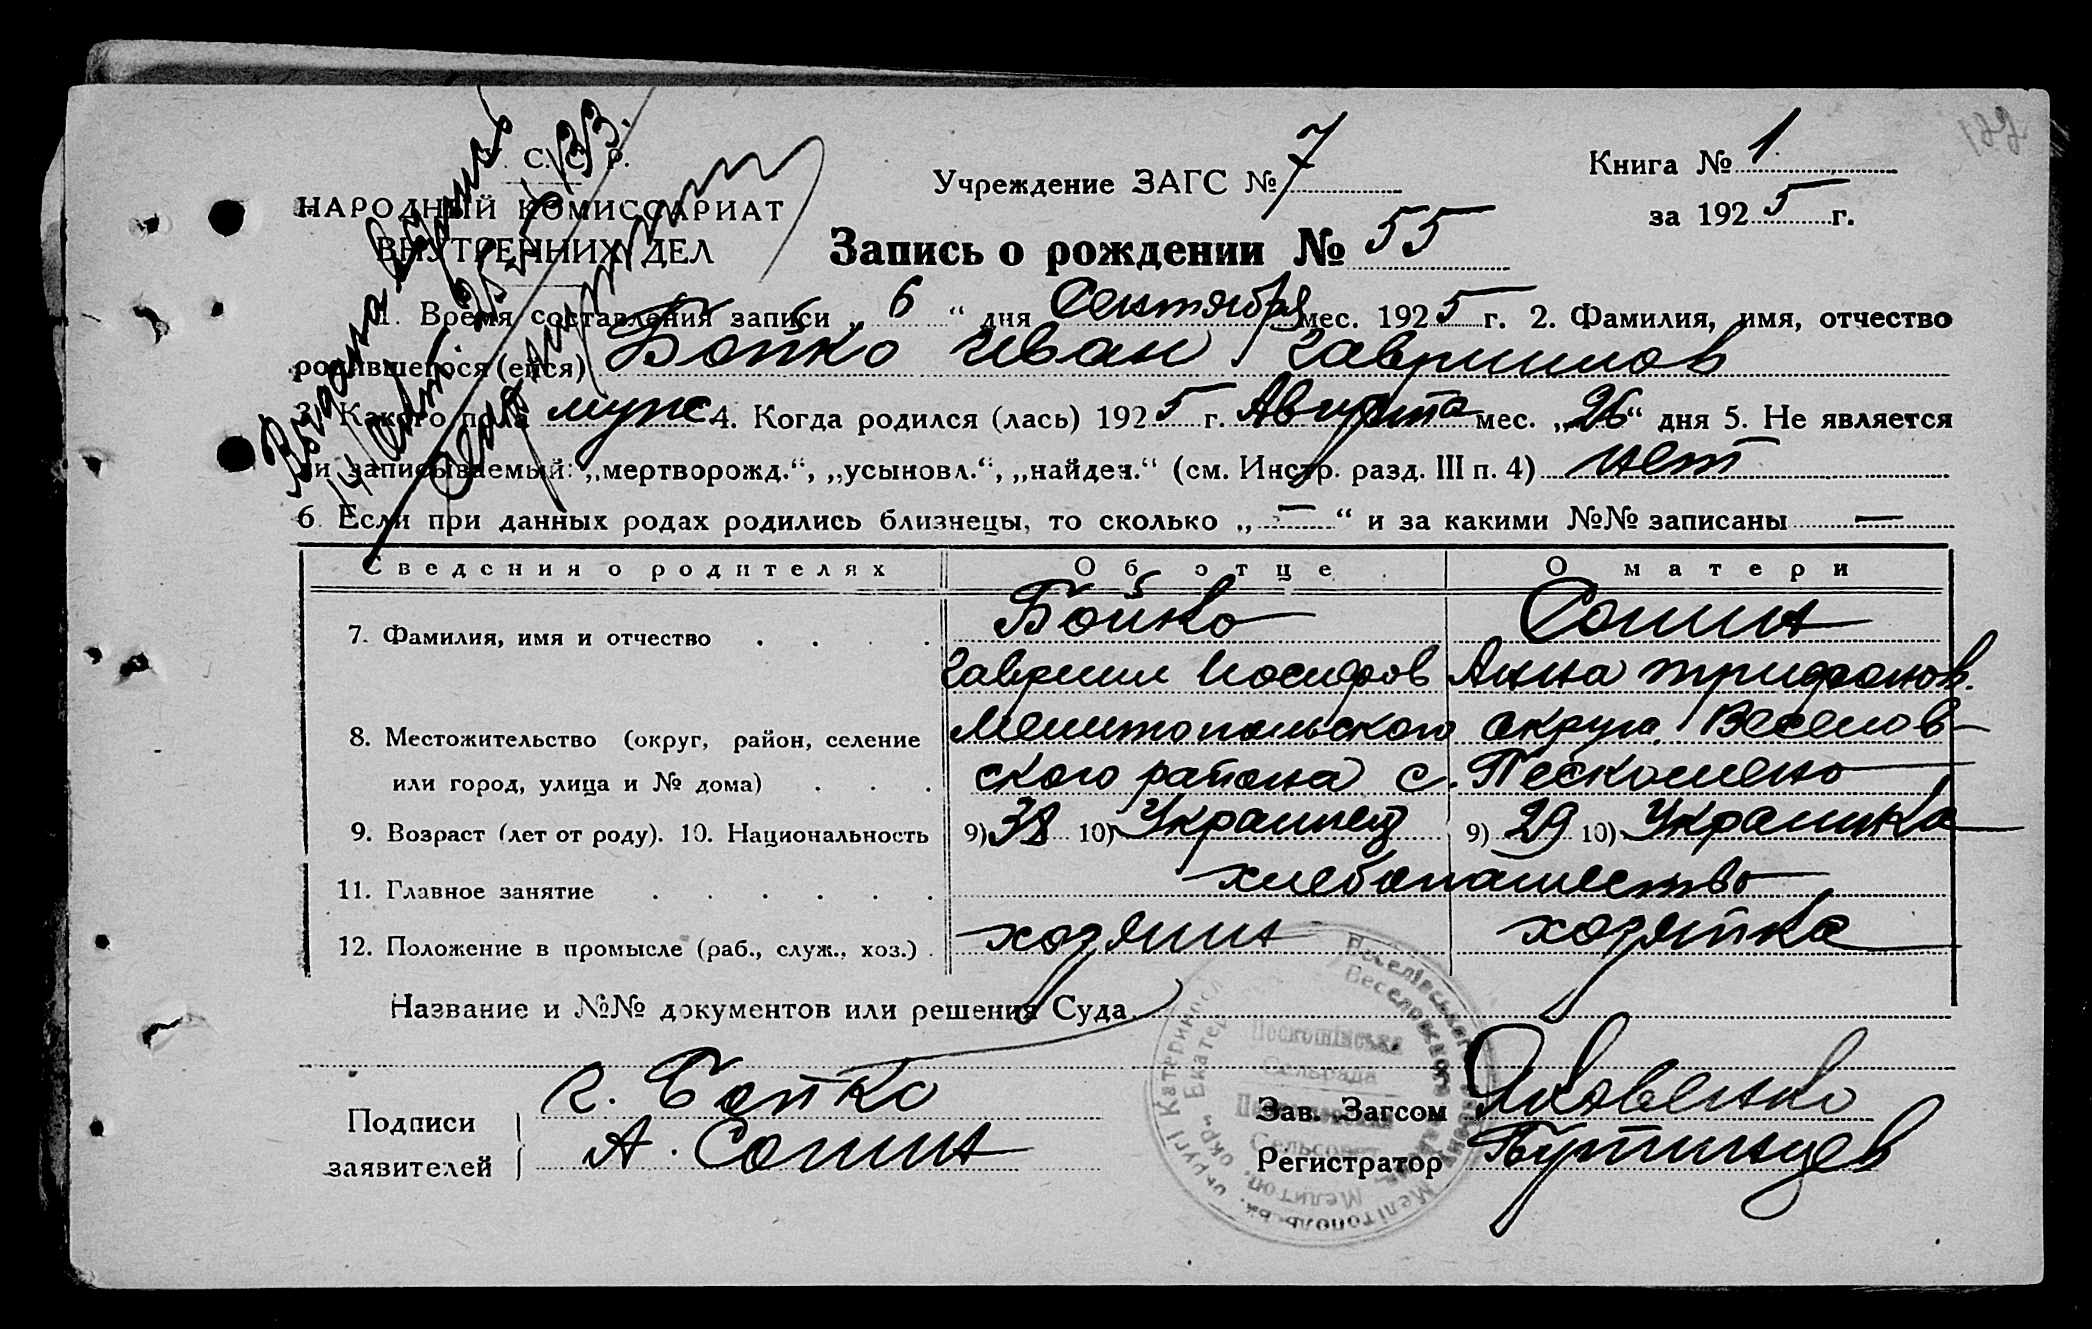 У. С. С. Р.
НАРОДНЫЙ КОМИССАРИАТ
ВНУТРЕННИХ ДЕЛ
Выдана
Учреждение ЗАГС № 7
Книга № 1
за 1925 г.
Запись о рождении № 55
1. Время составления записи „6“ дня Сентября мес. 1925 г. 2. Фамилия, имя, отчество
родившегося (ейся) Бойко Иван Гавриилов
3. Какого пола муж 4. Когда родился (лась) 1925 г. Августа мес. „26“ дня 5. Не является
ли записываемый: „мертворожд.“, „усыновл.“, „найден.“ (см. Инстр. разд. III п. 4) нет
6. Если при данных родах родились близнецы, то сколько „—“ и за какими №№ записаны —
Сведения о родителях Об отце О матери
7. Фамилия, имя и отчество Бойко Сопин
Гавриил Иосифов Анна Трифонов.
8. Местожительство (округ, район, селение Мелитопольского округа Веселов-
или город, улица и № дома) ского района с. Пескошено
9. Возраст (лет от роду). 10. Национальность 9) 38 10) Украинец 9) 29 10) Украинка
11. Главное занятие хлебопашество
12. Положение в промысле (раб., служ., хоз.) хозяин хозяйка
Название и №№ документов или решения Суда
Подписи заявителей
Г. Бойко
А. Сопин
Зав. Загсом Яковенко
Регистратор
Пескошинська
Сельрада
Сельсовет